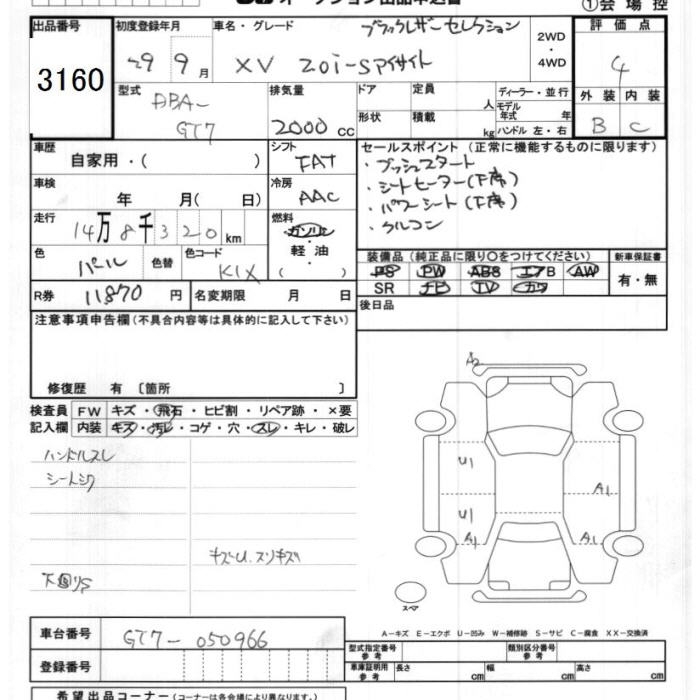 ①会場控
出品番号 3160
初度登録年月 29 9月
車名・グレード ブラックレザーセレクション
XV 2.0i-Sアイサイト
2WD・4WD
評価点 4
外装 内装
B C
型式 DBA-GT7
排気量 2000 cc
ドア 定員 人
形状 積載 kg
ディーラー・並行
モデル年式 年
ハンドル 左・右
車歴 自家用・( )
シフト FAT
セールスポイント (正常に機能するものに限ります)
・プッシュスタート
・シートヒーター(F席)
・パワーシート(F席)
・クルコン
車検 年 月( 日)
冷房 AAC
走行 14万8千320km
燃料 ガソリン・軽油・( )
色 パール 色替 色コード K1X
装備品 (純正品に限り○をつけてください)
PS PW ABS エアB AW
SR ナビ TV カワ
新車保証書 有・無
R券 11870円 名変期限 月 日
後日品
注意事項申告欄 (不具合内容等は具体的に記入して下さい)
修復歴 有 〔箇所 〕
検査員記入欄
FW キズ・飛石・ヒビ割・リペア跡・×要
内装 キズ・汚レ・コゲ・穴・スレ・キレ・破レ
ハンドルスレ
シートシワ
キズU.スリキズ
下回りS
A2
U1
U1
A1
A1
A1
スペア
A-キズ E-エクボ U-凹み W-補修跡 S-サビ C-腐食 XX-交換済
車台番号 GT7-050966
登録番号
型式指定番号 参考 類別区分番号 参考
車庫証明用 参考 長さ cm 幅 cm 高さ cm
希望出品コーナー (コーナーは各会場により異なります。)